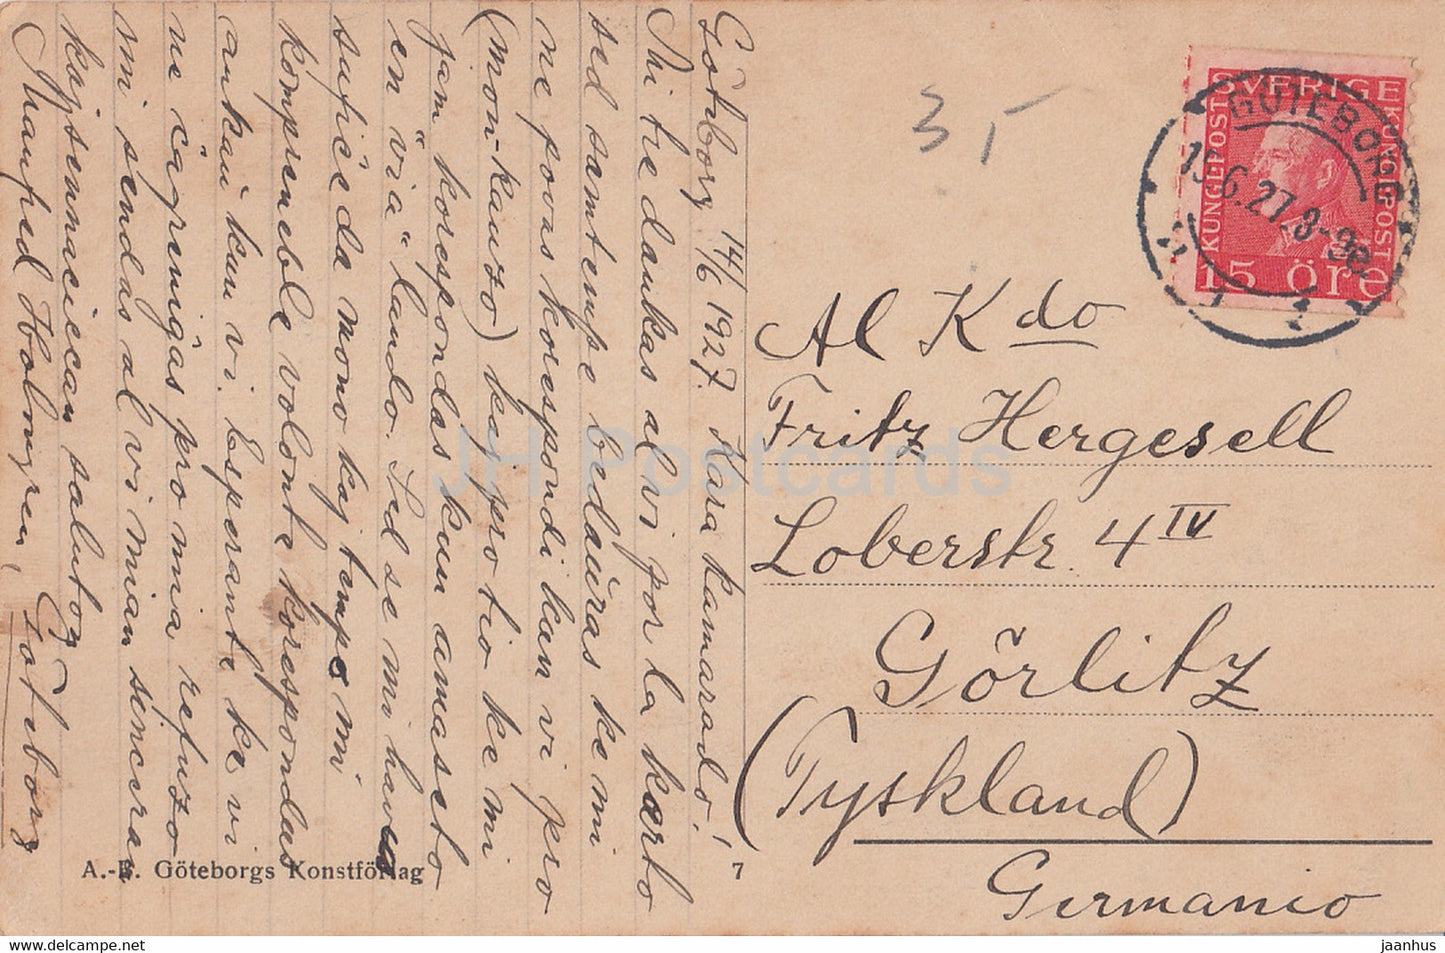 Göteborg 14/6 1927. Kara kamarado!
Mi tre dankas al vi por la karto
sed samtempe bedaŭras ke mi
ne povas korespondi kan vi pro
(mon-kauzo) kaj pro tio ke mi
jam korespondas kun amaseto
en "via" lando. Sed se mi havas
sufiĉe da mono kaj tempo mi
kompreneble volonte korespondas
ankaŭ kun vi. Esperante ke vi
ne ĉagreniĝas pro mia refuzo
mi sendas al vi mian sinceran
kajsennaciecan saluton
Manfred Holmgren, Göteborg
SVERIGE
KUNGL POST
KUNGL POST
15 ÖRE
GÖTEBORG
15.6.27.8-9e.
1
3,-
Al Kdo
Fritz Hergesell
Loberstr. 4 IV
Görlitz
(Tyskland)
Germanio
A.-B. Göteborgs Konstförlag
7
JH Postcards
delcampe.net
jaanhus